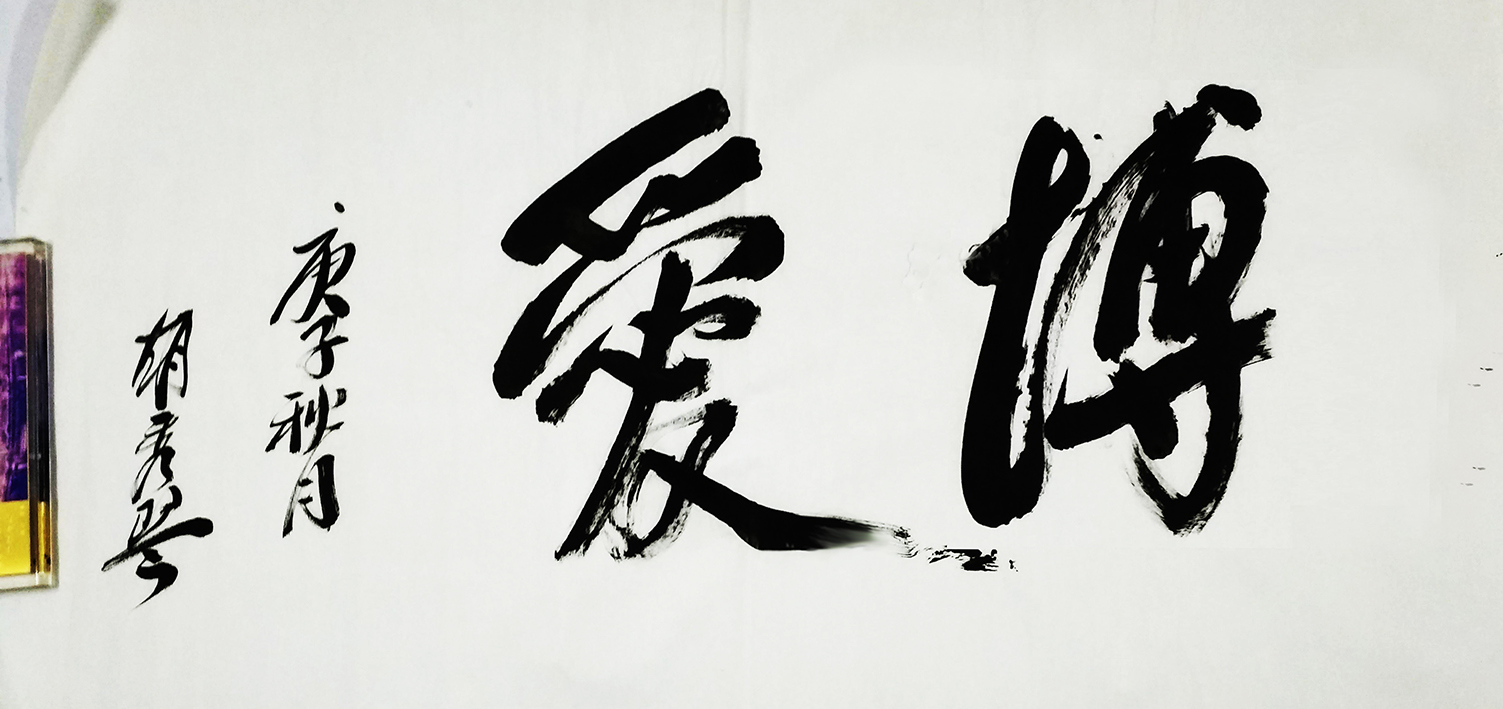 博愛
庚子秋月
胡秀琴